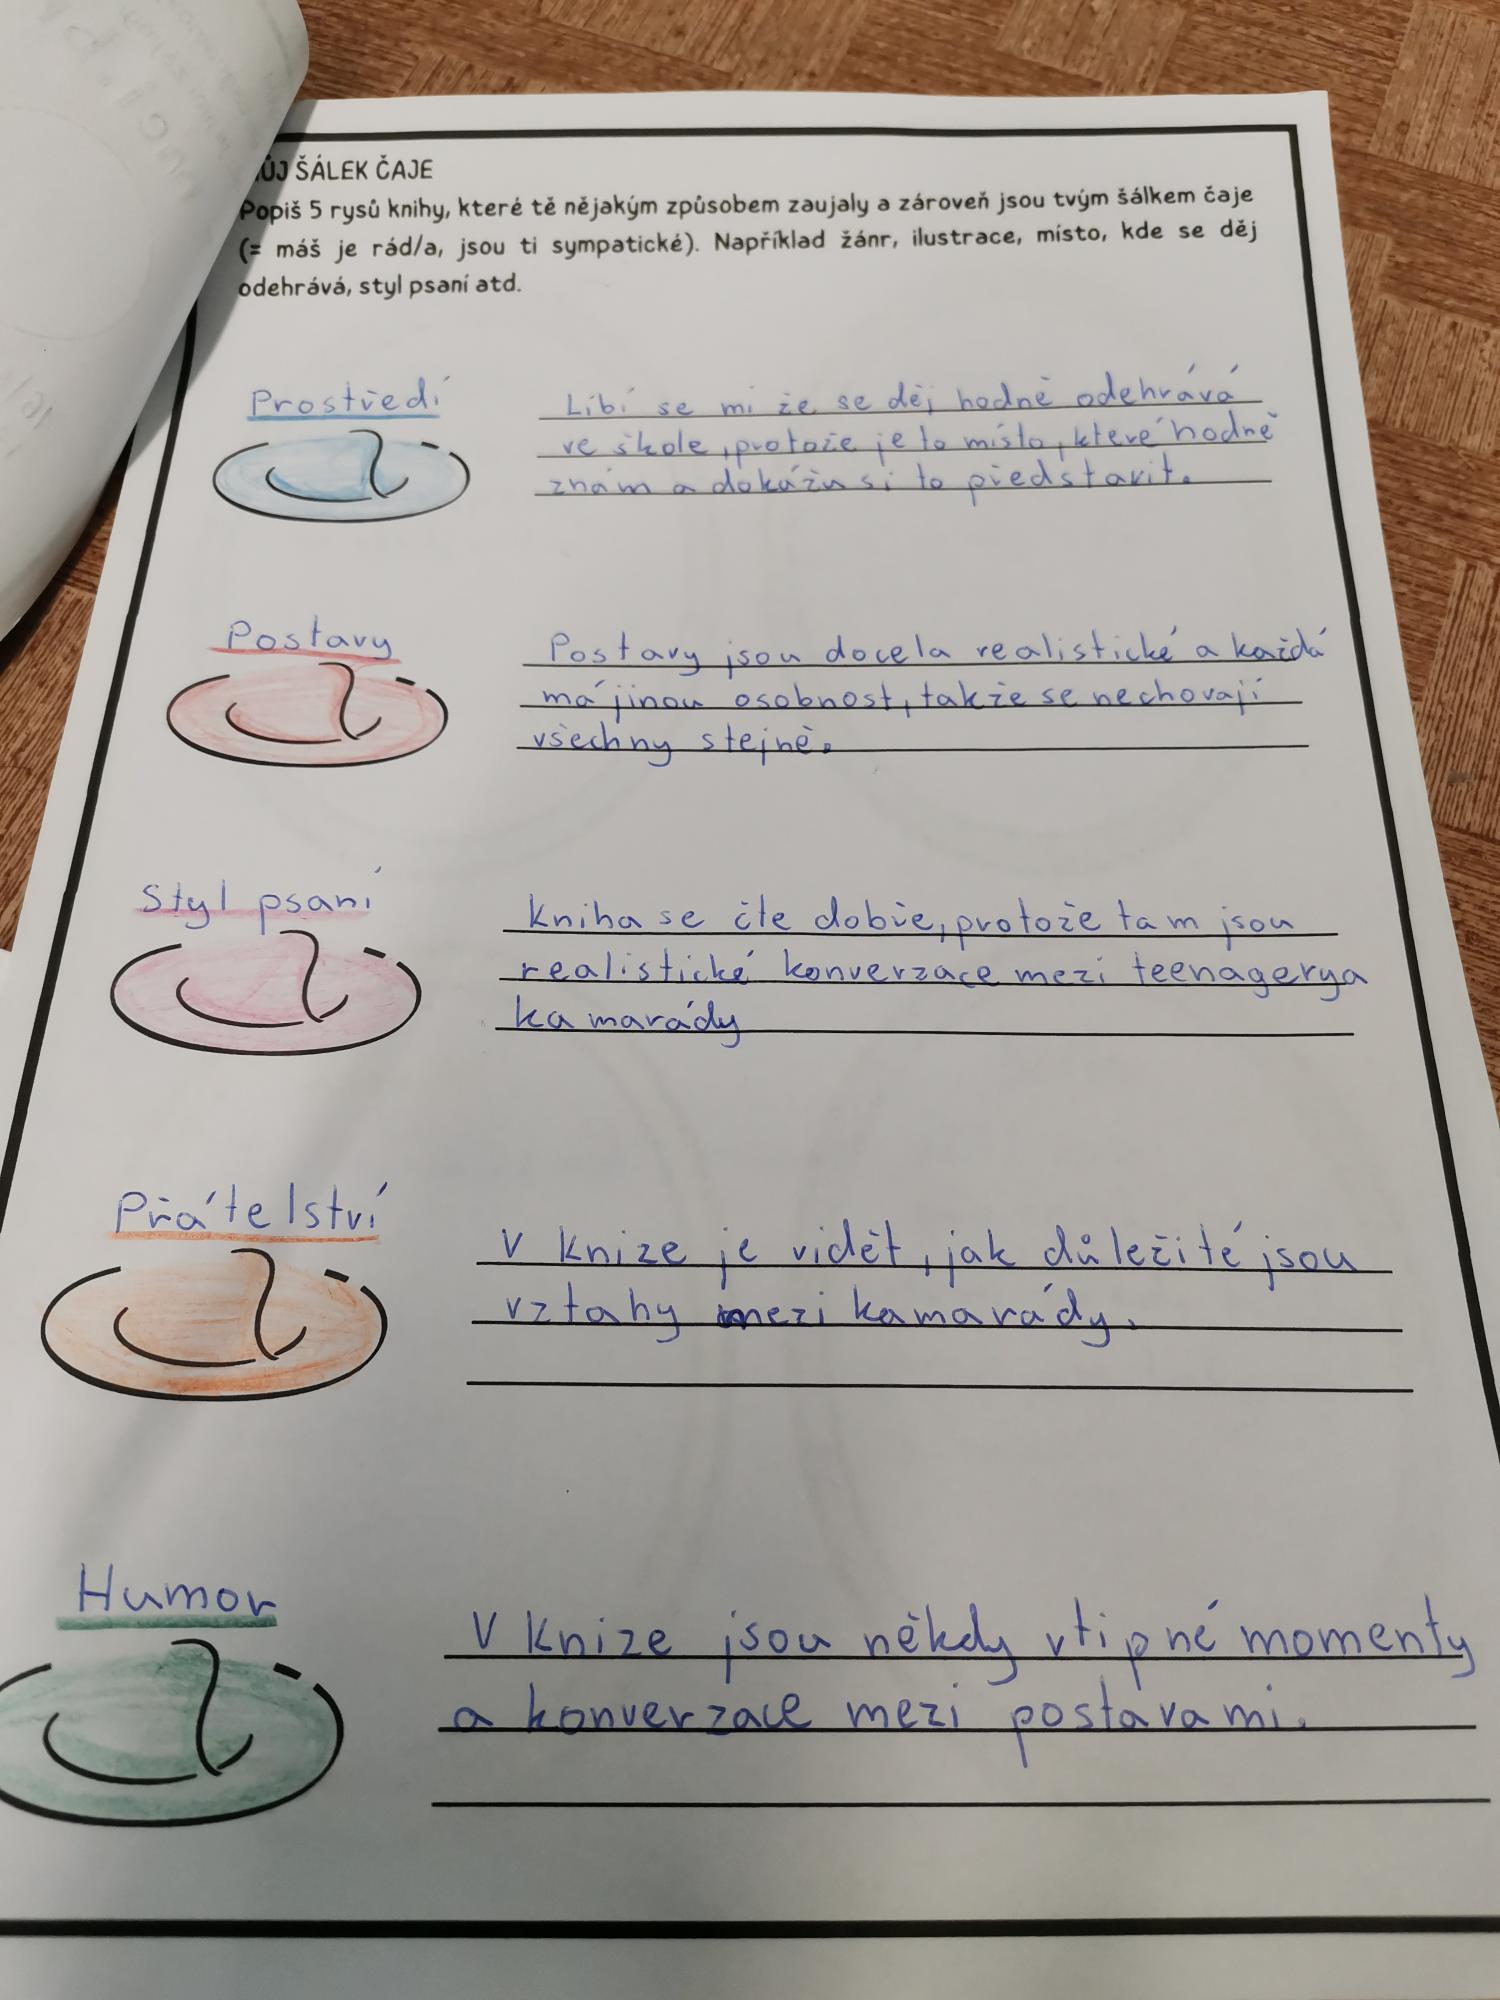 ŮJ ŠÁLEK ČAJE
Popiš 5 rysů knihy, které tě nějakým způsobem zaujaly a zároveň jsou tvým šálkem čaje
(= máš je rád/a, jsou ti sympatické). Například žánr, ilustrace, místo, kde se děj
odehrává, styl psaní atd.
Prostředí
Líbí se mi že se děj hodně odehrává
ve škole, protože je to místo, které hodně
znám a dokážu si to představit.
Postavy
Postavy jsou docela realistické a každá
má jinou osobnost, takže se nechovají
všechny stejně.
Styl psaní
Kniha se čte dobře, protože tam jsou
realistické konverzace mezi teenagery a
kamarády
Přátelství
V knize je vidět, jak důležité jsou
vztahy mezi kamarády.
Humor
V knize jsou někdy vtipné momenty
a konverzace mezi postavami.